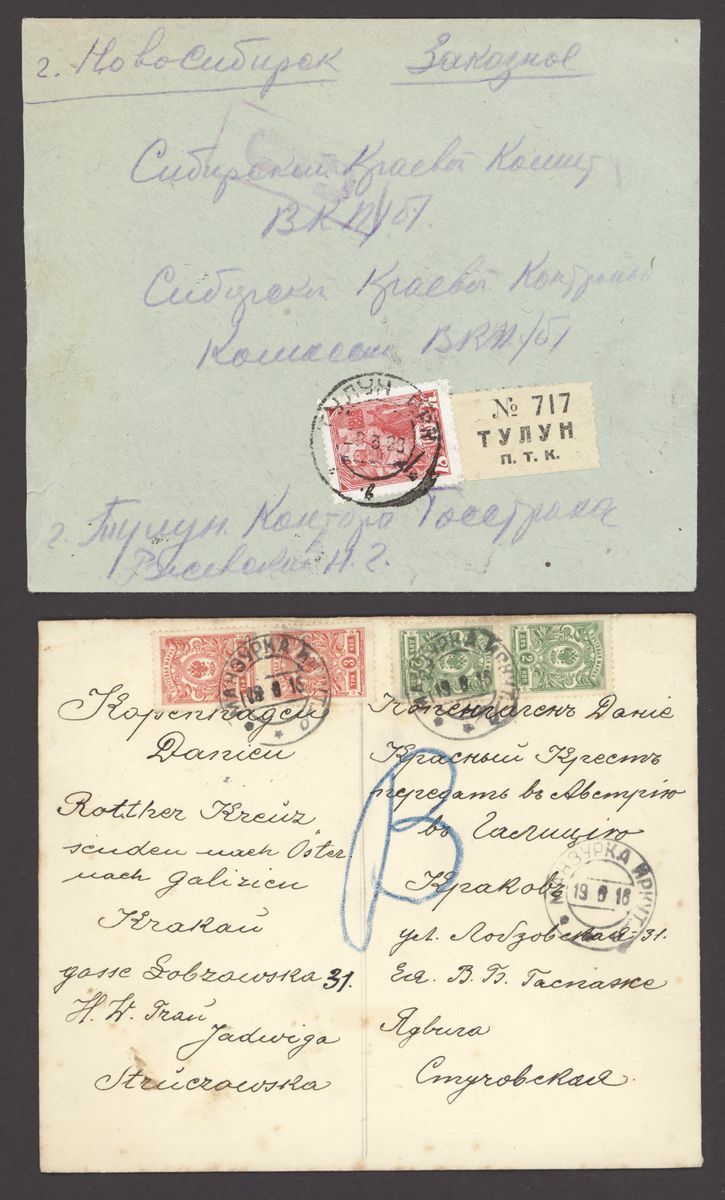 г. Новосибирск Заказное
Сибирский Краевой Комит
ВКП/б/
Сибирской Краевой Контрольн
Комиссии ВКП/б/
ТУЛУН
-8-3.28
№ 717
ТУЛУН
П. Т. К.
г. Тулун. Контора Госстраха
Н. Г.
МАНЗУРКА ИРКУТ.
19 6 16
МАНЗУРКА ИРКУТ.
19 6 16
Kopenhagen
Danien
Rotther Kreuz
senden nach Öster-
nach Galizien
Krakau
gasse Lobzowska 31.
H. W. Frau
Jadwiga
Struczowska
Копенгагенъ Даніе
Красный Крестъ
передать въ Австрію
въ Галицію
Краковъ
ул. Лобзовская 31.
Ея. В. Б. Гаспаже
Ядвига
Стучовская.
В
МАНЗУРКА ИРКУТ.
19 6 16